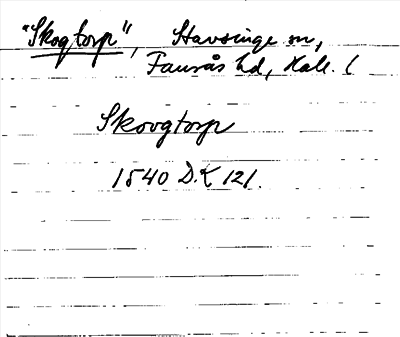 "Skogtorp", Stavsinge sn,
Faurås hd, Hall. (
Skovgtorp
1540 DK 121.